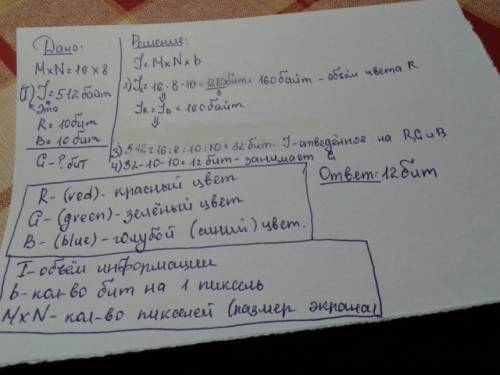 Дано:
M×N=16×8
(I) I=512 байт
Это
R=10бит
B=10 бит
G-? бит
Решение:
I=M×N×b
2) I_R=16·8·10=1280бит/8=160байт - объём цвета R
⇓
I_R=I_B=160байт
⇓
3) 512=16:8:10:10=32бит- I-отведённое на R,G и B
4) 32-10-10=12бит-занимает G
Ответ: 12бит
R-(red)- красный цвет
G-(green)-зелёный цвет
B-(blue)-голубой (синий) цвет.
I-объём информации
b-кол-во бит на 1 пиксель
M×N-кол-во пикселей (размер экрана)